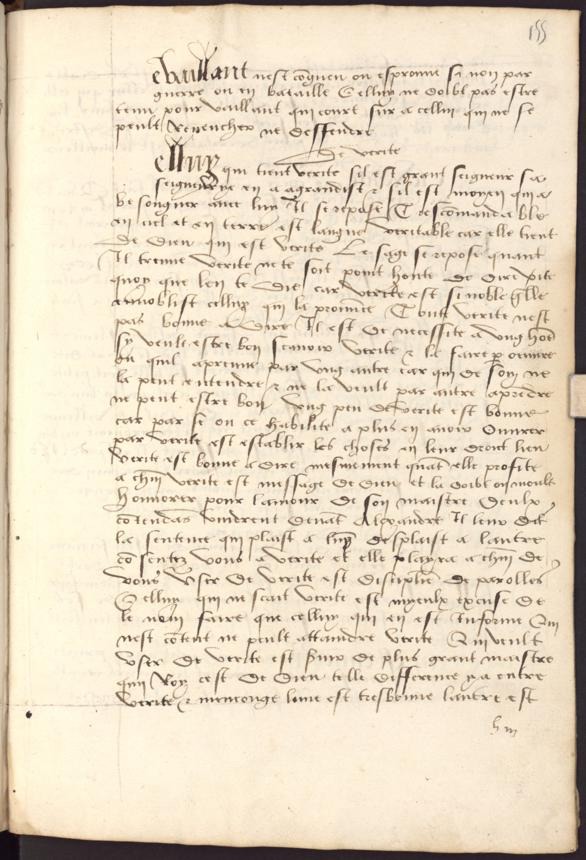 155
e vaillant nest cogneu ou esprouue si non par
guerre ou en bataille Celluy ne doibt pas estre
tenu pour vaillant qui court sur a celluy qui ne se
peult reuencher ne deffendre
De verite
elluy qui tient verite sil est grant seigneur sa
seigneurye en a agrandist & sil est moyen qui a
be songner auec luy Il se repose Et descomandable
en ciel et en terre est langue veritable car elle tient
de dieu qui est verite Le sage se repose quant
Il treuue verite ne te soit point honte de dire vite
quoy que len te die car verite est si noble qlle
ennoblist celluy qui la pronuce Toute verite nest
pas bonne a dire Il est de necessite a vng hoe
sy veult estre bon scauoir verite & le faire
ou quil apreune par vng autre car qui de soy ne
la peut entendre & ne la veult par autre apredre
ne peut estre bon Vng peu de verite est bonne
car par se on ce habilite a plus en auoir Ouurer
par verite est establir les choses en leur droict lieu
Verite est bonne a dire mesmement quat elle profite
a chun verite est message de dieu et la doibt on moult
honnorer pour lamour de son maistre Deulx
cotendas vindrent deuat Alexandre Il leur dit
la sentence qui plaist a lung desplaist a lautre
cosentez vous a verite et elle playra a chun de
vous User de verite est discipline de parolles
Celluy qui ne scait verite est myeulx excuse de
le non faire que celluy qui en est Informe Qui
nest cotent ne peult attaindre verite Qui veult
user de verite est de plus grant maistre
que Roy cest de dieu telle difference y a entre
verite & menconge lune est tresbonne lautre est
h iii